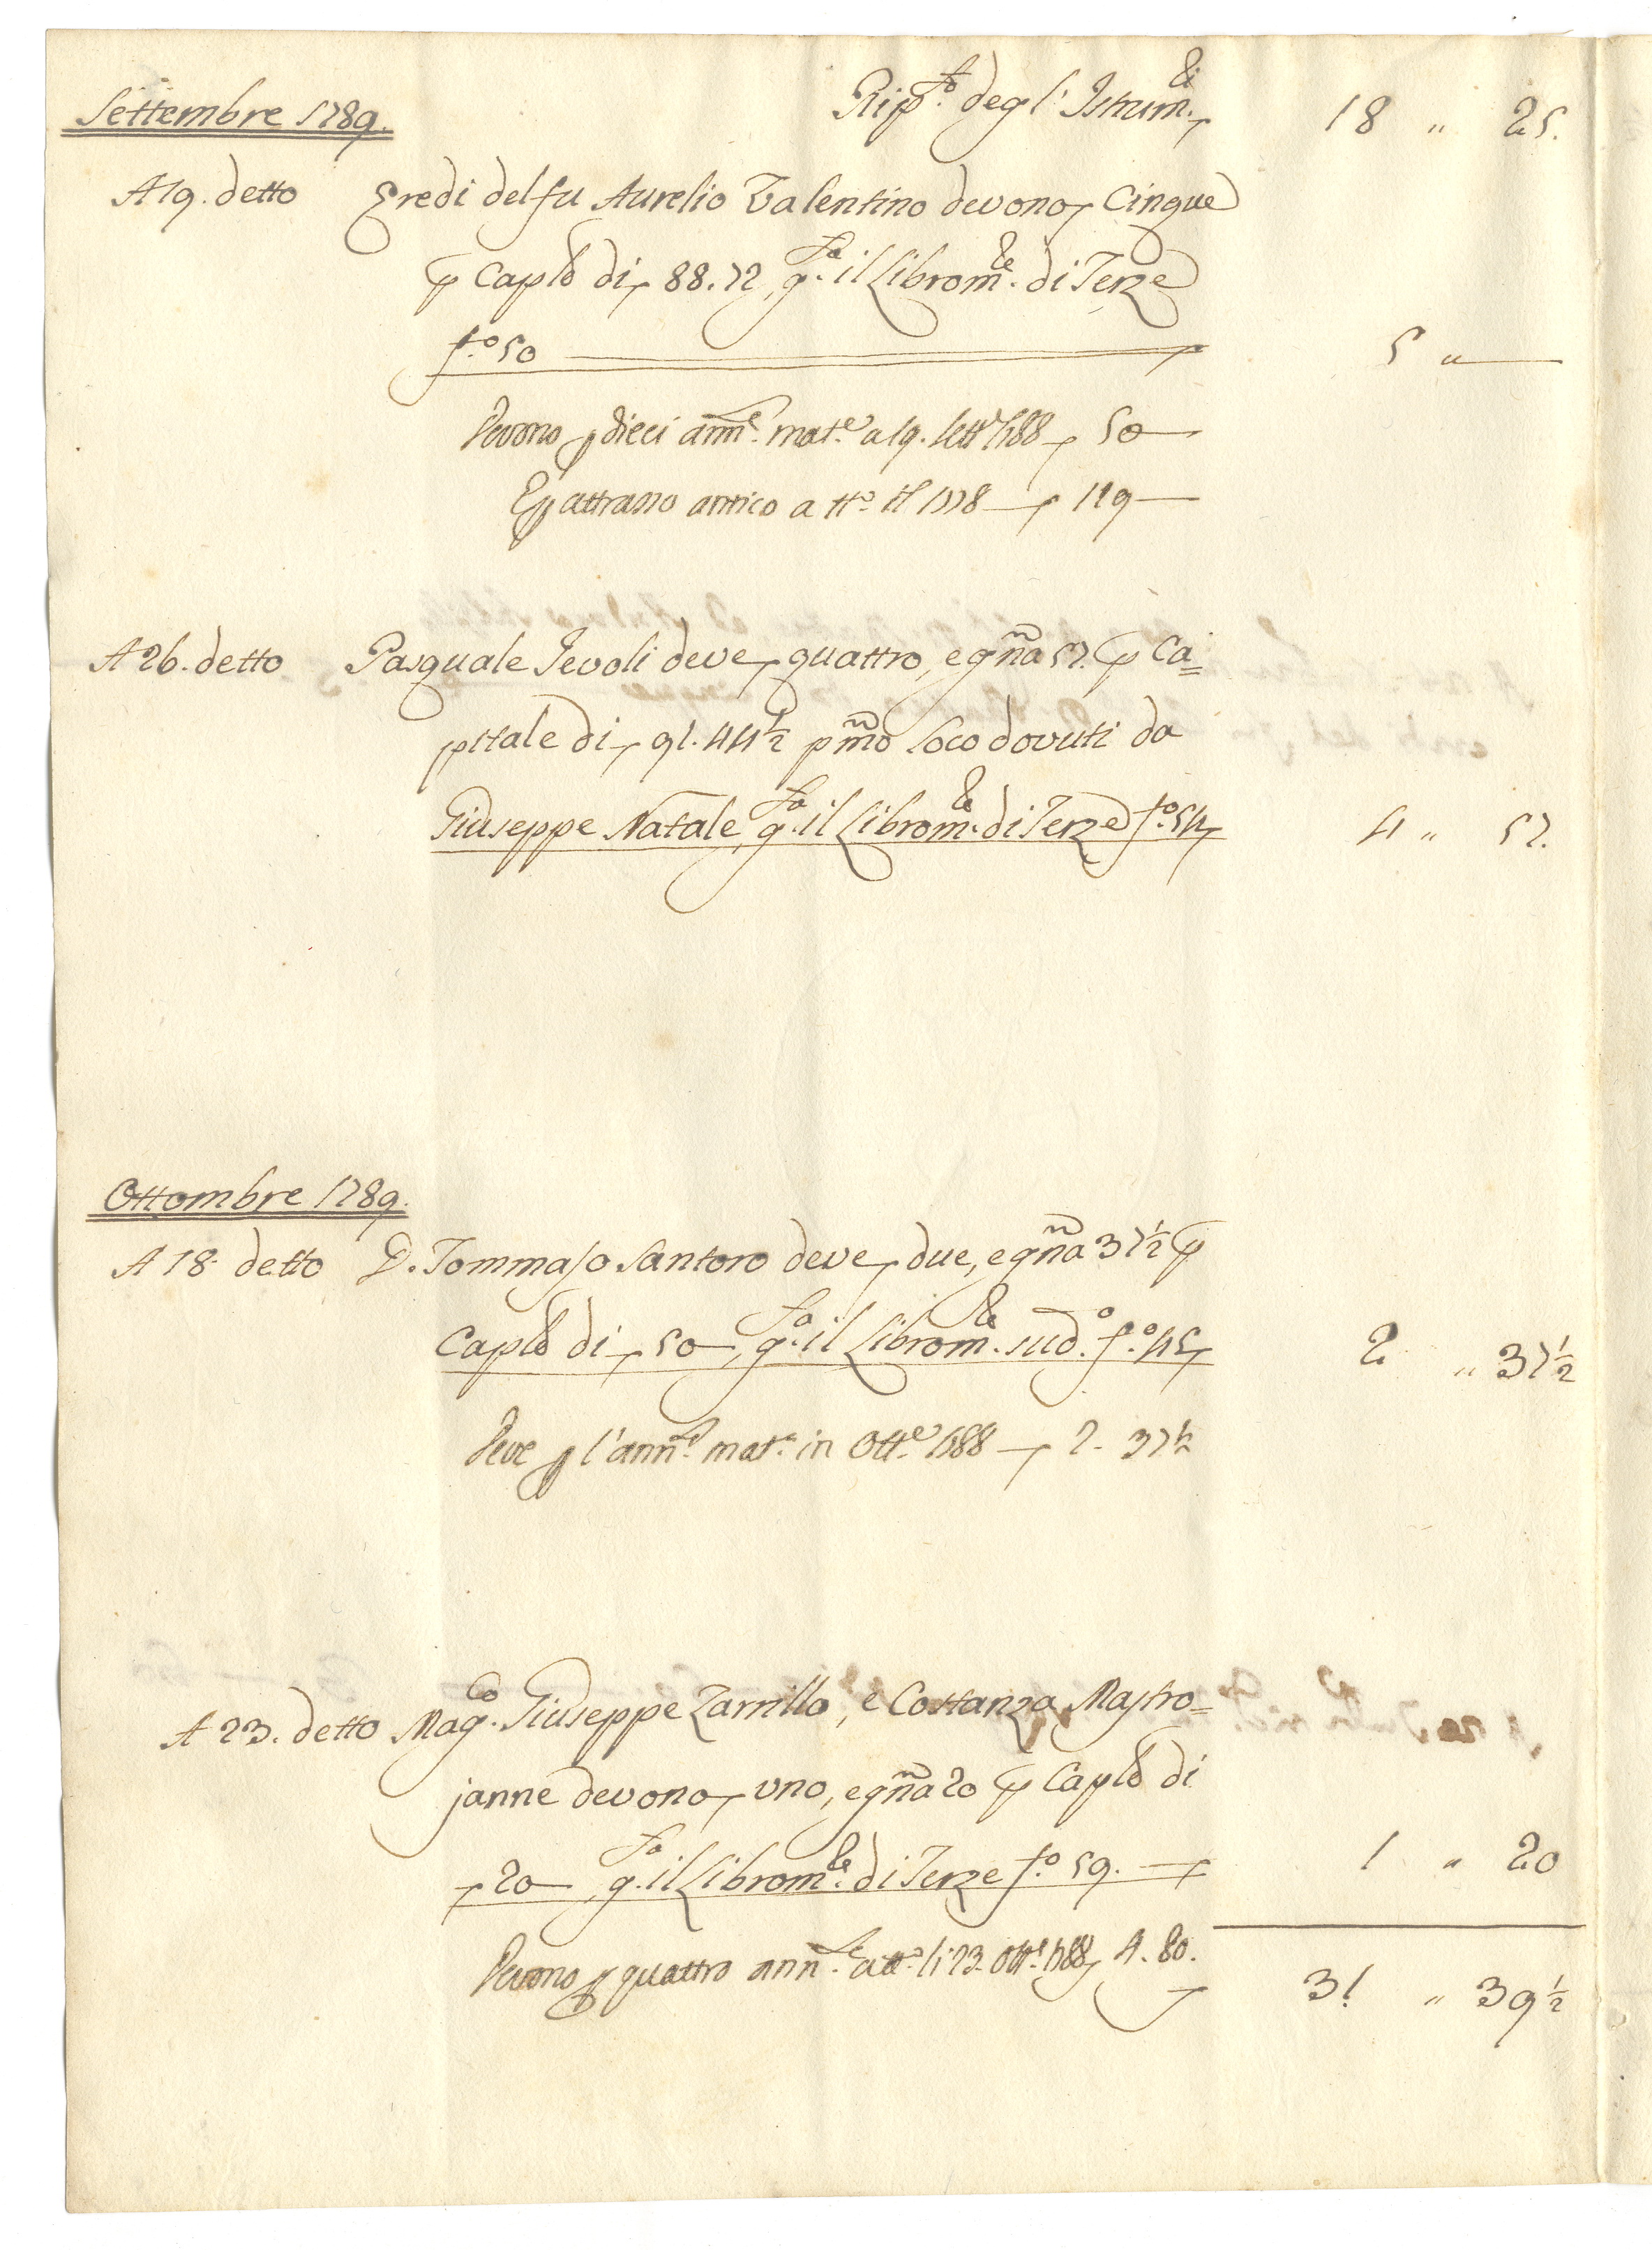 Settembre 1789. Rip.to degl' Istrum.ti 18 " 25.
A 19. detto Eredi del fu Aurelio Valentino devono Cinque
p Cap.le di 88.72, g.ta il Libro m.le di Terze
f.o 50 5 "
Devono p dieci ann.e mat.e a 19. Sett.e 1788 50
E p attrasso antico a tt.o il 1778 119
A 26. detto Pasquale Jevoli deve quattro, e gna 57. p Ca=
pitale di 91.44½ pmo loco dovuti da
Giuseppe Natale, g.ta il Libro m.le di Terze f.o 54 4 " 57.
Ottombre 1789.
A 18. detto D. Tommaso Santoro deve due, e gna 37½ p
Cap.le di 50, g.ta il Libro m.le sud.o f.o 45 2 " 37½
Deve p l'ann.e mat.e in Ott.e 1788 2. 37½
A 23. detto Mag.co Giuseppe Zarrillo, e Costanza Mastro=
janne devono uno, e gna 20 p Cap.le di
20, g.ta il Libro m.le di Terze f.o 59. 1 " 20
Devono p quattro ann.e a tt.o li 23. Ott.e 1788 4. 80.
31 " 39½